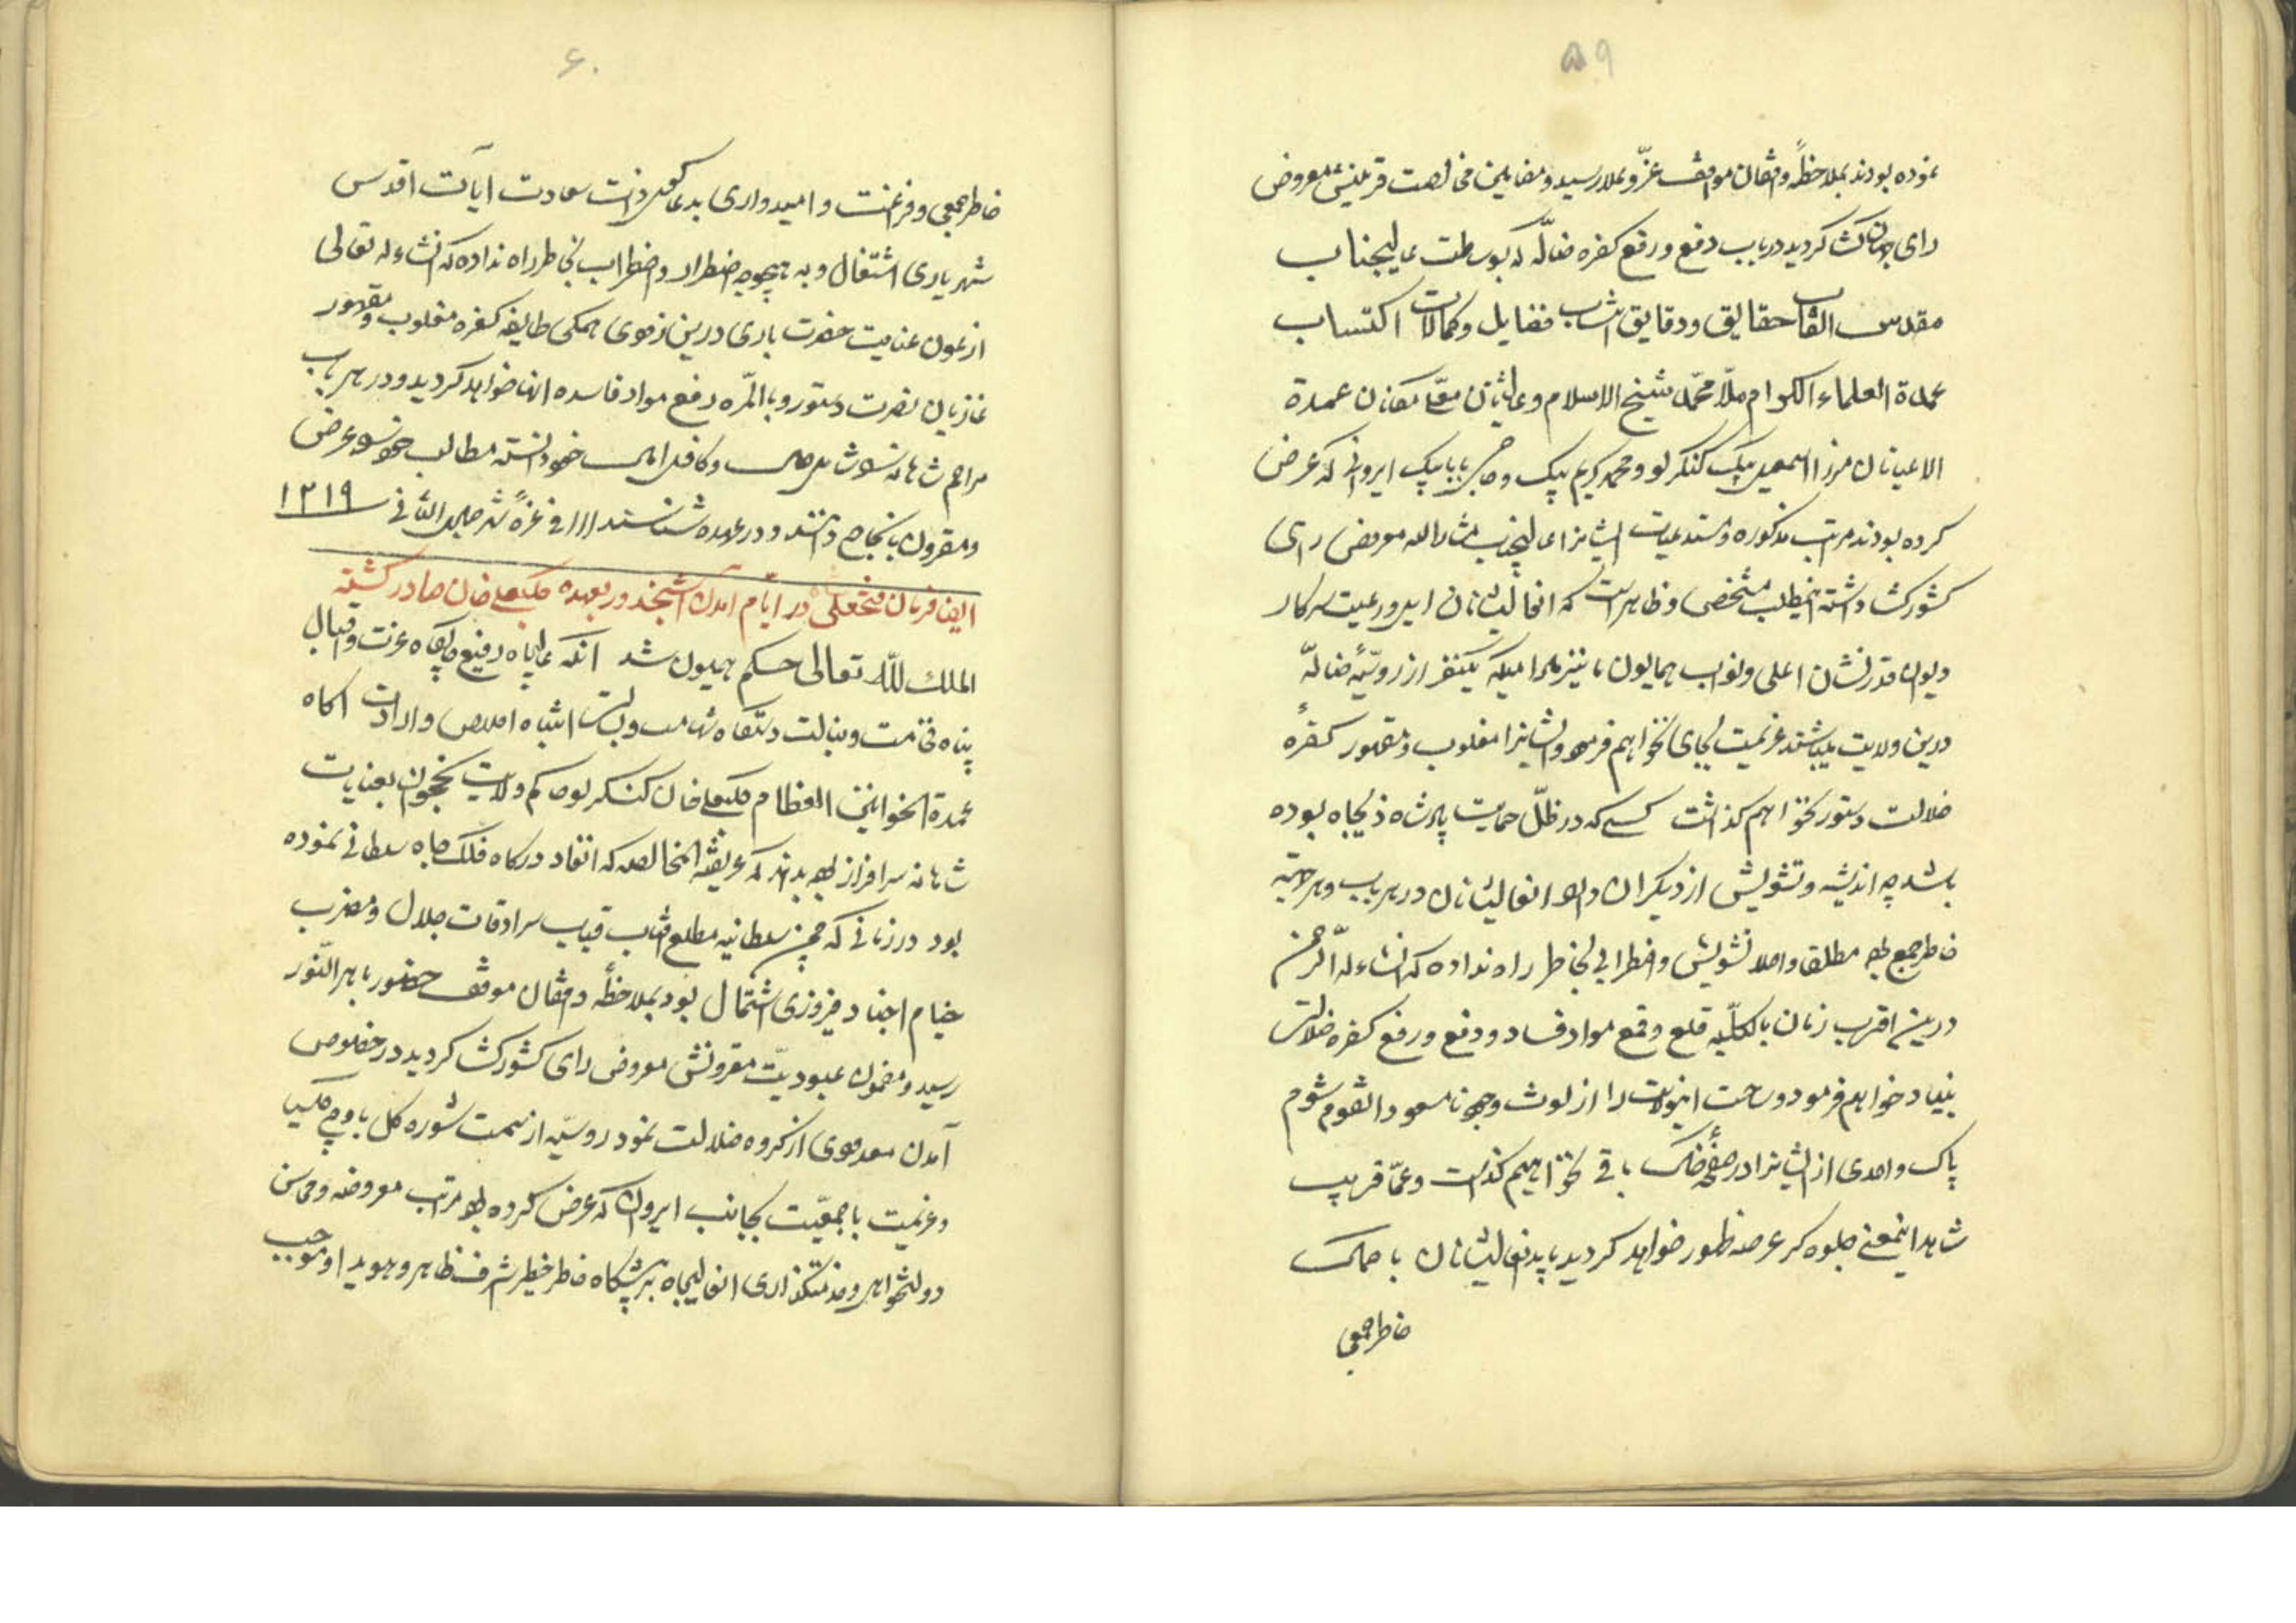 ۵۹
نموده بودند بملاحظهٔ واقفان مواقف عزّ و علا رسید و مضامین مخالصت قرینش معروض
رای جهان گشا گردید در باب دفع و رفع کفره ضالّه که بوساطت عالیجناب
مقدس القاب حقایق و دقایق انتساب فضایل و کمالات اکتساب
عمدة العلماء الکرام ملّا محمّد شیخ الاسلام و عالیشان معلّی مکانان عمدة
الاعیانان مرزا اسمعیل بیک کنکرلو و محمد کریم بیک و حاجی بابا بیک ایروانی که عرض
کرده بودند مراتب مذکوره و مستدعیات ایشانرا عالیجناب مشارالیه معروض رای
کشورگشا داشته اینمطلب مشخص و ظاهر است که انعالیشانان ایل و رعیت سرکار
دیوان قدر نشان اعلی و نواب همایون ما نیز مادامیکه یکنفر از روسیّهٔ ضالّه
درین ولایت میباشند عزیمت بجای نخواهیم فرمود و ایشانرا مغلوب و مقهور کفرهٔ
ضلالت دستور نخواهیم گذاشت کسی که در ظلّ حمایت پادشاه ذیجاه بوده
باشد چه اندیشه و تشویش از دیگران دارد انعالیشانان در هر باب و هر جهة
خاطر جمع بوده مطلقا و اصلا تشویش و اضطرابی بخاطر راه نداده که انشاءله الرحمن
درین اقرب زمان بالکلّیه قلع و قمع مواد فساد و دفع و رفع کفره ضلالت
بنیاد خواهیم فرمود و ساحت انولایت را از لوث وجود نامسعود القوم شوم
پاک و احدی از ایشانرا در صفحهٔ خاک باقی نخواهیم گذاشت و عمّا قریب
شاهد اینمعنی جلوه گر عرصه ظهور خواهد گردید باید انعالیشانان با
خاطر جمعی
۶۰
خاطر جمعی و فراغت و امیدواری بدعاگوی ذات سعادت ایات اقدس
شهریاری اشتغال و به هیچوجه اضطرار و اضطراب بخاطر راه نداده که انشاءله تعالی
از عون عنایت حضرت باری درین زودی همگی طایفه کفره مغلوب و مقهور
غازیان نصرت دستور و بالمرّه دفع مواد فاسده انها خواهد گردید و در هر باب
مراحم شاهانه را شامل حال و کافل امال خود دانسته مطالب خود را عرض
و مقرون بانجاح دانند و در عهده شناسند فی غرّهٔ شهر جمادی الثانی ۱۲۱۹
ایضا فرمان فتحعلی شاه در ایّام آمدن اشپخدر بعهده کلبعلی خان صادر گشته
الملك لله تعالی حکم همیون شد انکه عالیجاه رفیع جایگاه عزت و اقبال
پناه فخامت و مناعت دستگاه شهامت و بسالت انتباه اخلاص و ارادت اگاه
عمدة الخوانین العظام کلبعلی خان کنکرلو حاکم ولایت نخجوان بعنایات
شاهانه سرافراز بوده بداند که عریضة المخالصه که انفاد درگاه فلک جاه سلطانی نموده
بود در زمانی که چمن سلطانیه مطلع افتاب قباب سرادقات جلال و مضرب
خیام اجناد فیروزی اشتمال بود بملاحظهٔ واقفان موقف حضور باهر النّور
رسید و مضمون عبودیّت مقرونش معروض رای کشورگشا گردید در خصوص
آمدن معدودی از گروه ضلالت نمود روسیّه از سمت شوره گل باوچ کلیسا
و عزیمت با جمعیّت بجانب ایروان که عرض کرده بود مراتب معروضه و محاسن
دولتخواهی و خدمتگذاری انعالیجاه در پیشگاه خاطر خطیر اشرف ظاهر و هویدا و موجب